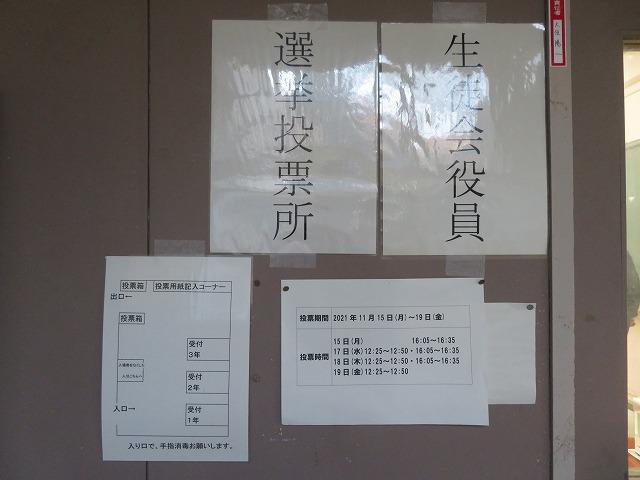 生徒会役員
選挙投票所
投票箱 投票用紙記入コーナー
出口←
投票箱
受付
3年
受付
2年
入口→
受付
1年
入り口で、手指消毒お願いします。
投票期間 2021年11月15日(月)~19日(金)
投票時間
15日(月) 16:05~16:35
17日(水)12:25~12:50・16:05~16:35
18日(木)12:25~12:50・16:05~16:35
19日(金)12:25~12:50